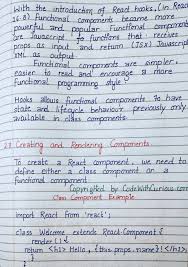 With the introduction of React hooks, (in React
16.8) Functional components became more
powerful and popular. Functional components
are Javascript functions that receives
props as input and return (JSX) Javascript
XML as output.
Functional components are simpler,
easier to read and encourage a more
Functional programming style
Hooks allows functional components to have
state and lifecycle behaviour previously only
available in class components.
2.1 Creating and Rendering Components
To create a React component, we need to
define either a class component or a
functional component.
Copyrighted by CodeWithCurious.com
Class Component Example
import React from 'react';
class Welcome extends React.Component {
render () {
return <h1> Hello, {this.props.name}! </h1>;
}